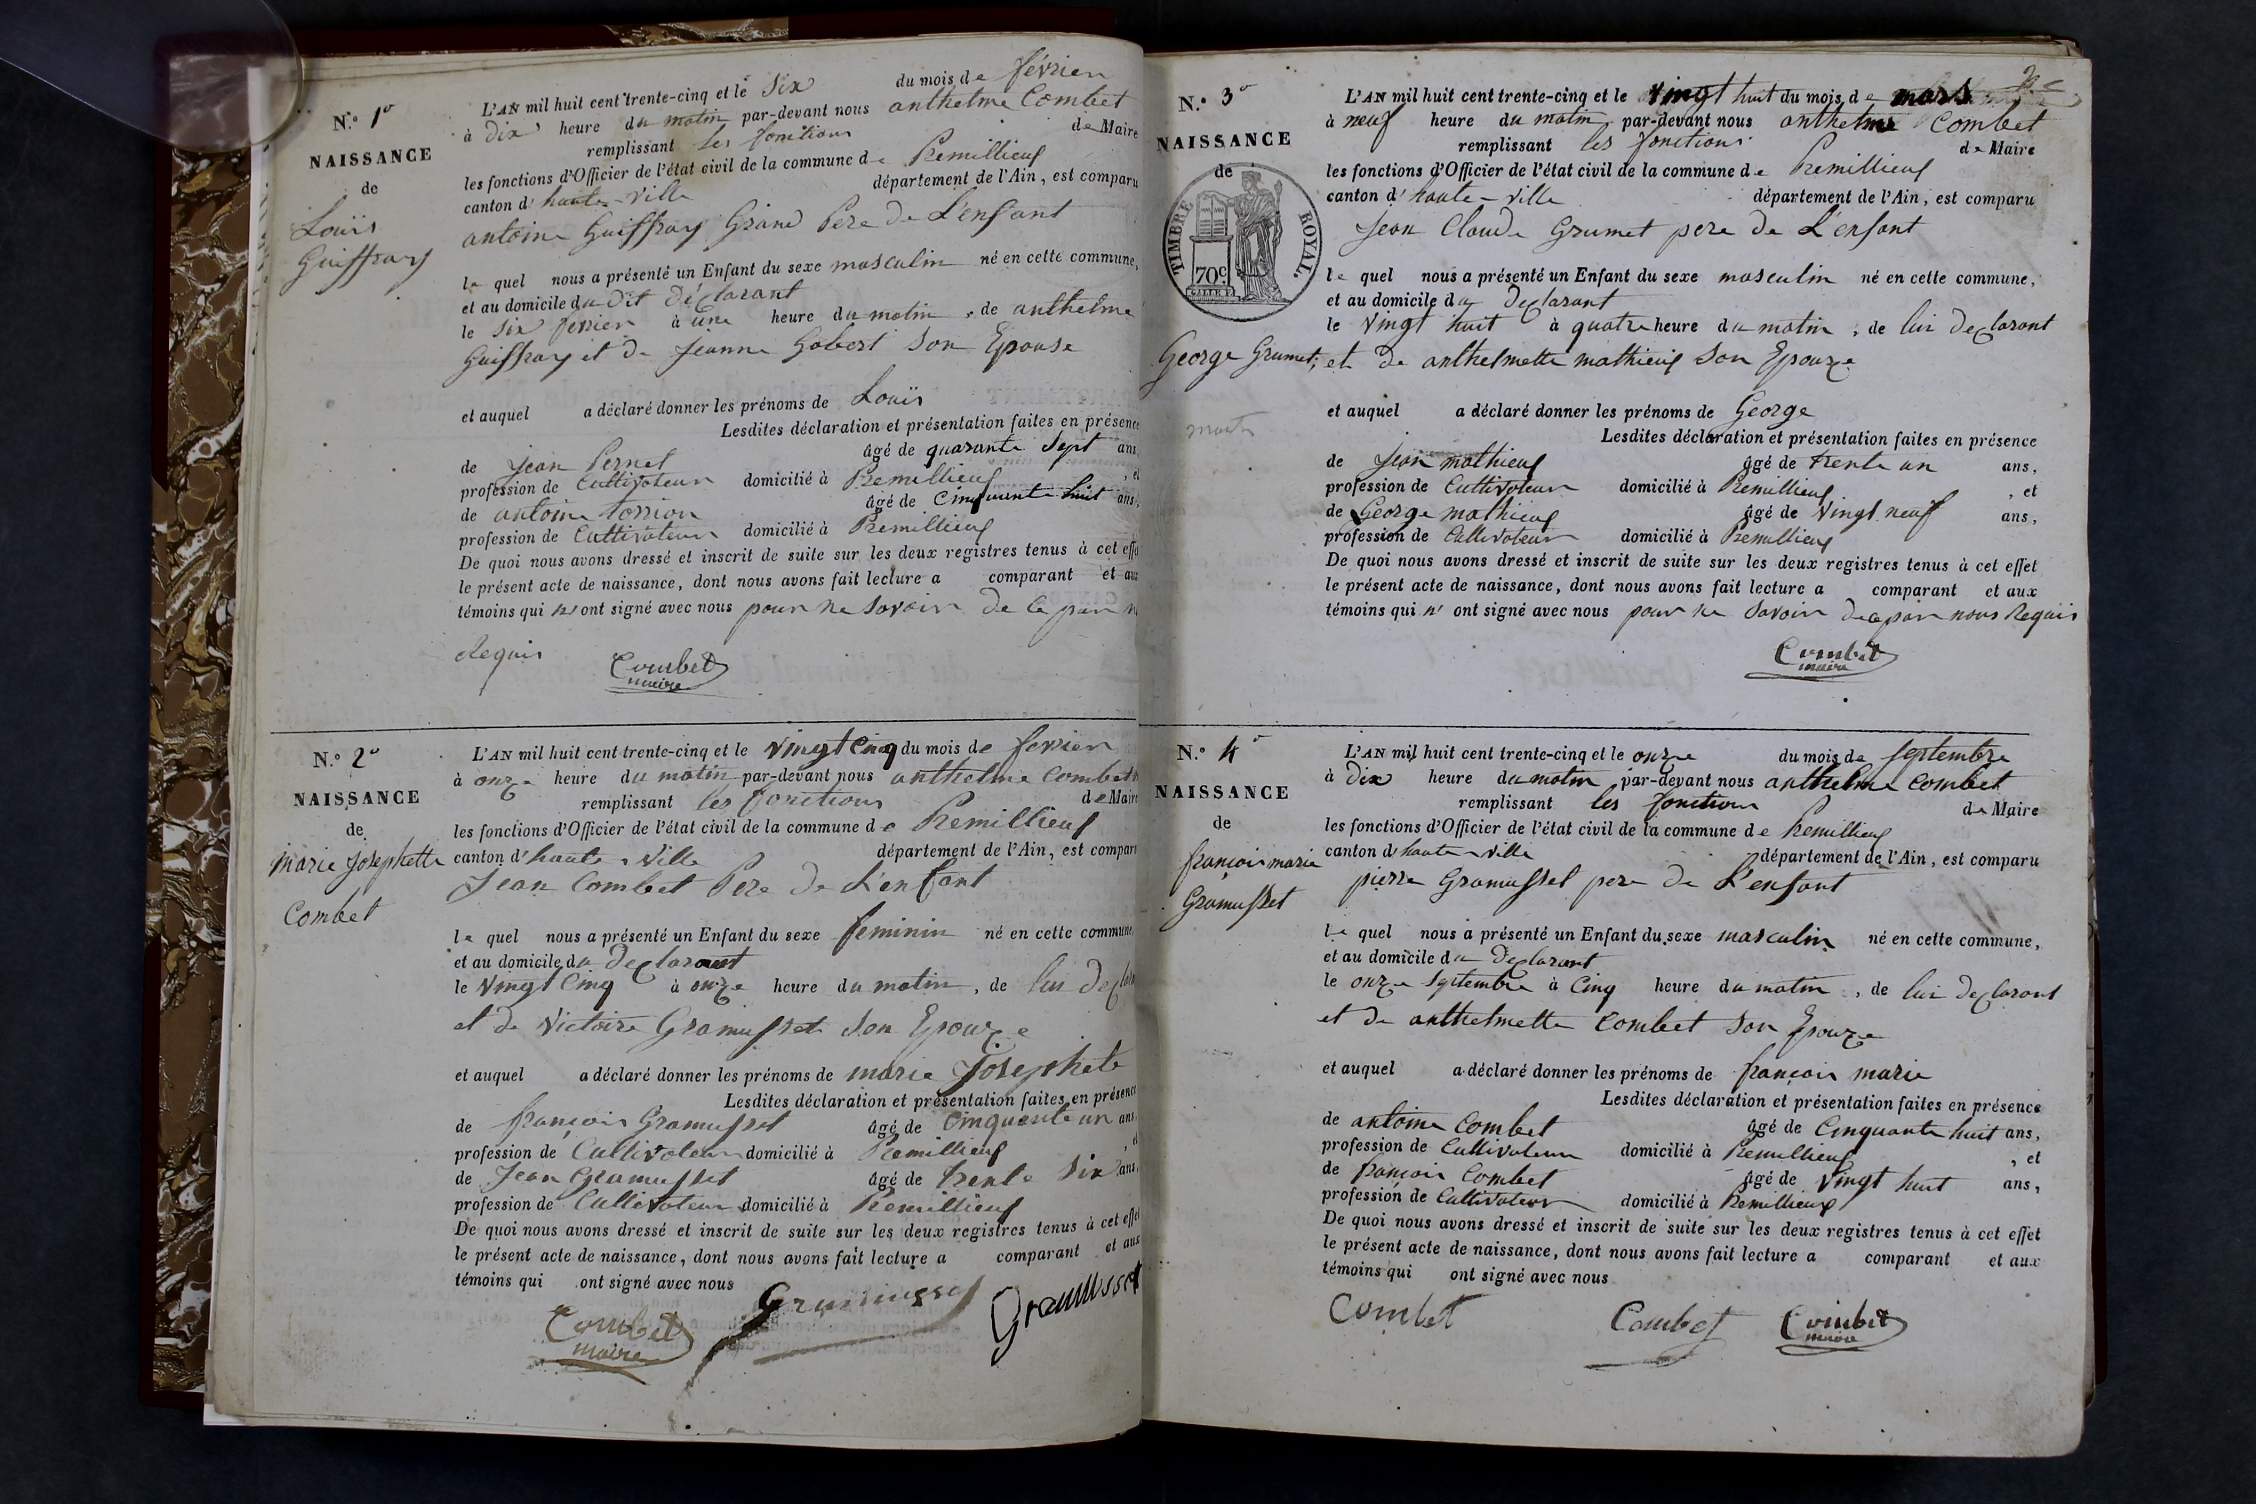 N.º 1º
NAISSANCE
de
Louis
Guiffray
L'AN mil huit cent trente-cinq et le six du mois de février
à dix heure du matin par-devant nous anthelme Combet
de Maire
remplissant les fonctions
les fonctions d'Officier de l'état civil de la commune de Premillieuf
canton d'haute-ville département de l'Ain, est comparu
antoine Guiffray Grand Pere de L'enfant
le quel nous a présenté un Enfant du sexe masculin né en cette commune,
et au domicile du dit déclarant
le six fevrier à une heure du matin, de anthelme
Guiffray et de Jeanne Gobert son Epouse
et auquel a déclaré donner les prénoms de Louis
Lesdites déclaration et présentation faites en présence
de Jean Pernet âgé de quarante sept ans,
profession de Cultivateur domicilié à Premillieuf, et
de antoine âgé de cinquante huit ans,
profession de Cultivateur domicilié à Premillieuf
De quoi nous avons dressé et inscrit de suite sur les deux registres tenus à cet effet
le présent acte de naissance, dont nous avons fait lecture a comparant et aux
témoins qui n'ont signé avec nous pour ne savoir de ce par n
Requis
Combet
maire
N.º 2º
NAISSANCE
de
marie Josephette
Combet
L'AN mil huit cent trente-cinq et le vingt cinq du mois de fevrier
à onze heure du matin par-devant nous anthelme Combet
de Maire
remplissant les fonctions
les fonctions d'Officier de l'état civil de la commune de Premillieuf
canton d'haute-ville département de l'Ain, est comparu
Jean Combet Pere de L'enfant
le quel nous a présenté un Enfant du sexe feminin né en cette commune,
et au domicile du declarant
le vingt cinq à onze heure du matin, de lui decla
et de Victoire Gramusset son Epouze
et auquel a déclaré donner les prénoms de marie Josephete
Lesdites déclaration et présentation faites en présence
de françois Gramusset âgé de cinquante un ans,
profession de Cultivateur domicilié à Premillieuf
de Jean Gramusset âgé de trente six ans,
profession de Cultivateur domicilié à Premillieuf
De quoi nous avons dressé et inscrit de suite sur les deux registres tenus à cet effet
le présent acte de naissance, dont nous avons fait lecture a comparant et aux
témoins qui ont signé avec nous
Combet
maire
Gramusset
Gramusset
N.º 3º
NAISSANCE
de
TIMBRE ROYAL.
70c
George Grumet
L'AN mil huit cent trente-cinq et le vingt huit du mois de mars
à neuf heure du matin par-devant nous anthelme Combet
de Maire
remplissant les fonctions
les fonctions d'Officier de l'état civil de la commune de Premillieuf
canton d'haute-ville département de l'Ain, est comparu
Jean Claude Grumet pere de L'enfant
le quel nous a présenté un Enfant du sexe masculin né en cette commune,
et au domicile du declarant
le vingt huit à quatre heure du matin, de lui declarant
et de anthelmette mathieuf son Epouze
et auquel a déclaré donner les prénoms de George
Lesdites déclaration et présentation faites en présence
de Jean mathieuf âgé de trente un ans,
profession de Cultivateur domicilié à Premillieuf, et
de George mathieuf âgé de vingt neuf ans,
profession de Cultivateur domicilié à Premillieuf
De quoi nous avons dressé et inscrit de suite sur les deux registres tenus à cet effet
le présent acte de naissance, dont nous avons fait lecture a comparant et aux
témoins qui n'ont signé avec nous pour ne savoir de ce par nous Requis
Combet
maire
N.º 4º
NAISSANCE
de
françois marie
Gramusset
L'AN mil huit cent trente-cinq et le onze du mois de septembre
à dix heure du matin par-devant nous anthelme combet
de Maire
remplissant les fonctions
les fonctions d'Officier de l'état civil de la commune de Premillieuf
canton d'haute-ville département de l'Ain, est comparu
pierre Gramusset pere de L'enfant
le quel nous a présenté un Enfant du sexe masculin né en cette commune,
et au domicile du declarant
le onze septembre à cinq heure du matin, de lui declarant
et de anthelmette combet son Epouze
et auquel a déclaré donner les prénoms de françois marie
Lesdites déclaration et présentation faites en présence
de antoine combet âgé de cinquante huit ans,
profession de Cultivateur domicilié à Premillieuf, et
de françois combet âgé de vingt huit ans,
profession de Cultivateur domicilié à Premillieuf
De quoi nous avons dressé et inscrit de suite sur les deux registres tenus à cet effet
le présent acte de naissance, dont nous avons fait lecture a comparant et aux
témoins qui ont signé avec nous
Combet
Combet
Combet
maire